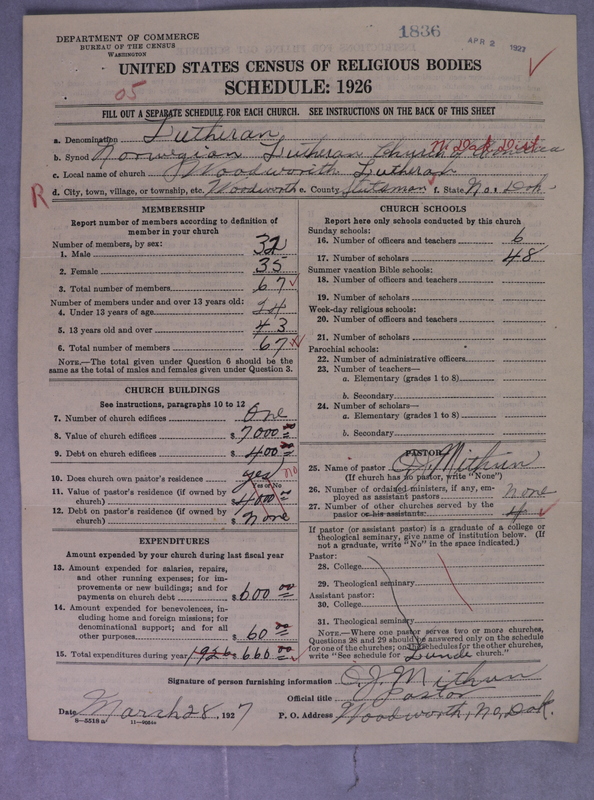 1836
APR 2 1927
DEPARTMENT OF COMMERCE
BUREAU OF THE CENSUS
WASHINGTON
UNITED STATES CENSUS OF RELIGIOUS BODIES
SCHEDULE: 1926
05
FILL OUT A SEPARATE SCHEDULE FOR EACH CHURCH. SEE INSTRUCTIONS ON THE BACK OF THIS SHEET
a. Denomination Lutheran
N. Dak Dist
b. Synod Norwegian Lutheran Church of America
c. Local name of church Woodworth Lutheran
R
d. City, town, village, or township, etc. Woodworth e. County Stutsman f. State No. Dak.
MEMBERSHIP
Report number of members according to definition of member in your church
Number of members, by sex:
1. Male 32
2. Female 35
3. Total number of members 67
Number of members under and over 13 years old:
4. Under 13 years of age 24
5. 13 years old and over 43
6. Total number of members 67
NOTE.—The total given under Question 6 should be the
same as the total of males and females given under Question 3.
CHURCH BUILDINGS
See instructions, paragraphs 10 to 12
7. Number of church edifices One
8. Value of church edifices $ 7000 00
9. Debt on church edifices $ 400 00
10. Does church own pastor's residence? yes no
Yes or No
11. Value of pastor's residence (if owned by
church) $ 4000 00
12. Debt on pastor's residence (if owned by
church) $ none
EXPENDITURES
Amount expended by your church during last fiscal year
13. Amount expended for salaries, repairs,
and other running expenses; for im-
provements or new buildings; and for
payments on church debt $ 600 00
14. Amount expended for benevolences, in-
cluding home and foreign missions; for
denominational support; and for all
other purposes $ 60 00
15. Total expenditures during year 1926 $ 660 00
CHURCH SCHOOLS
Report here only schools conducted by this church
Sunday schools:
16. Number of officers and teachers 6
17. Number of scholars 48
Summer vacation Bible schools:
18. Number of officers and teachers
19. Number of scholars
Week-day religious schools:
20. Number of officers and teachers
21. Number of scholars
Parochial schools:
22. Number of administrative officers
23. Number of teachers—
a. Elementary (grades 1 to 8)
b. Secondary
24. Number of scholars—
a. Elementary (grades 1 to 8)
b. Secondary
PASTOR
25. Name of pastor O. J. Mithun
(If church has no pastor, write "None")
26. Number of ordained ministers, if any, em-
ployed as assistant pastors none
27. Number of other churches served by the
pastor or his assistants 4
If pastor (or assistant pastor) is a graduate of a college or
theological seminary, give name of institution below. (If
not a graduate, write "No" in the space indicated.)
Pastor:
28. College
29. Theological seminary
Assistant pastor:
30. College
31. Theological seminary
NOTE.—Where one pastor serves two or more churches,
Questions 28 and 29 should be answered only on the schedule
for one of the churches; on the schedules for the other churches,
write "See schedule for Lunde church."
Signature of person furnishing information O. J. Mithun
Official title Pastor
Date March 28, 1927 P. O. Address Woodworth, No. Dak.
8—5518a 11—9054a